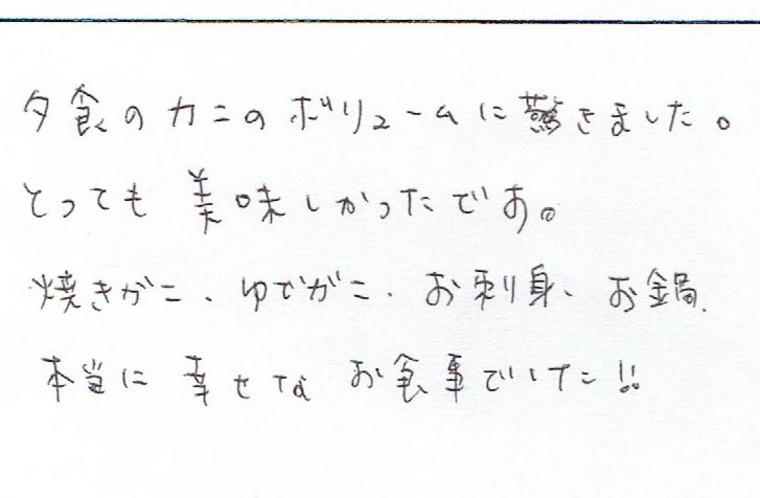 夕食のカニのボリュームに驚きました。
とっても美味しかったです。
焼きがに、ゆでがに、お刺身、お鍋、
本当に幸せなお食事でした!!